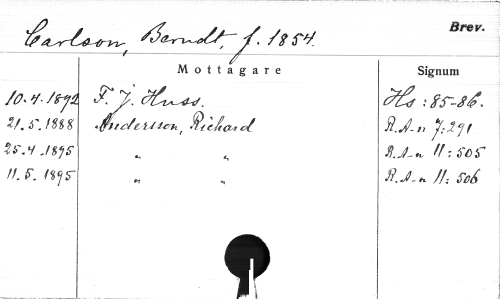 Carlson, Berndt, f. 1854. Brev.
Mottagare Signum
10.4.1892 F. J. Huss. Hs: 85-86.
21.5.1888 Andersson, Richard R.A-n 7:291
25.4.1895 " " R.A-n 11:505
11.5.1895 " " R.A-n 11:506